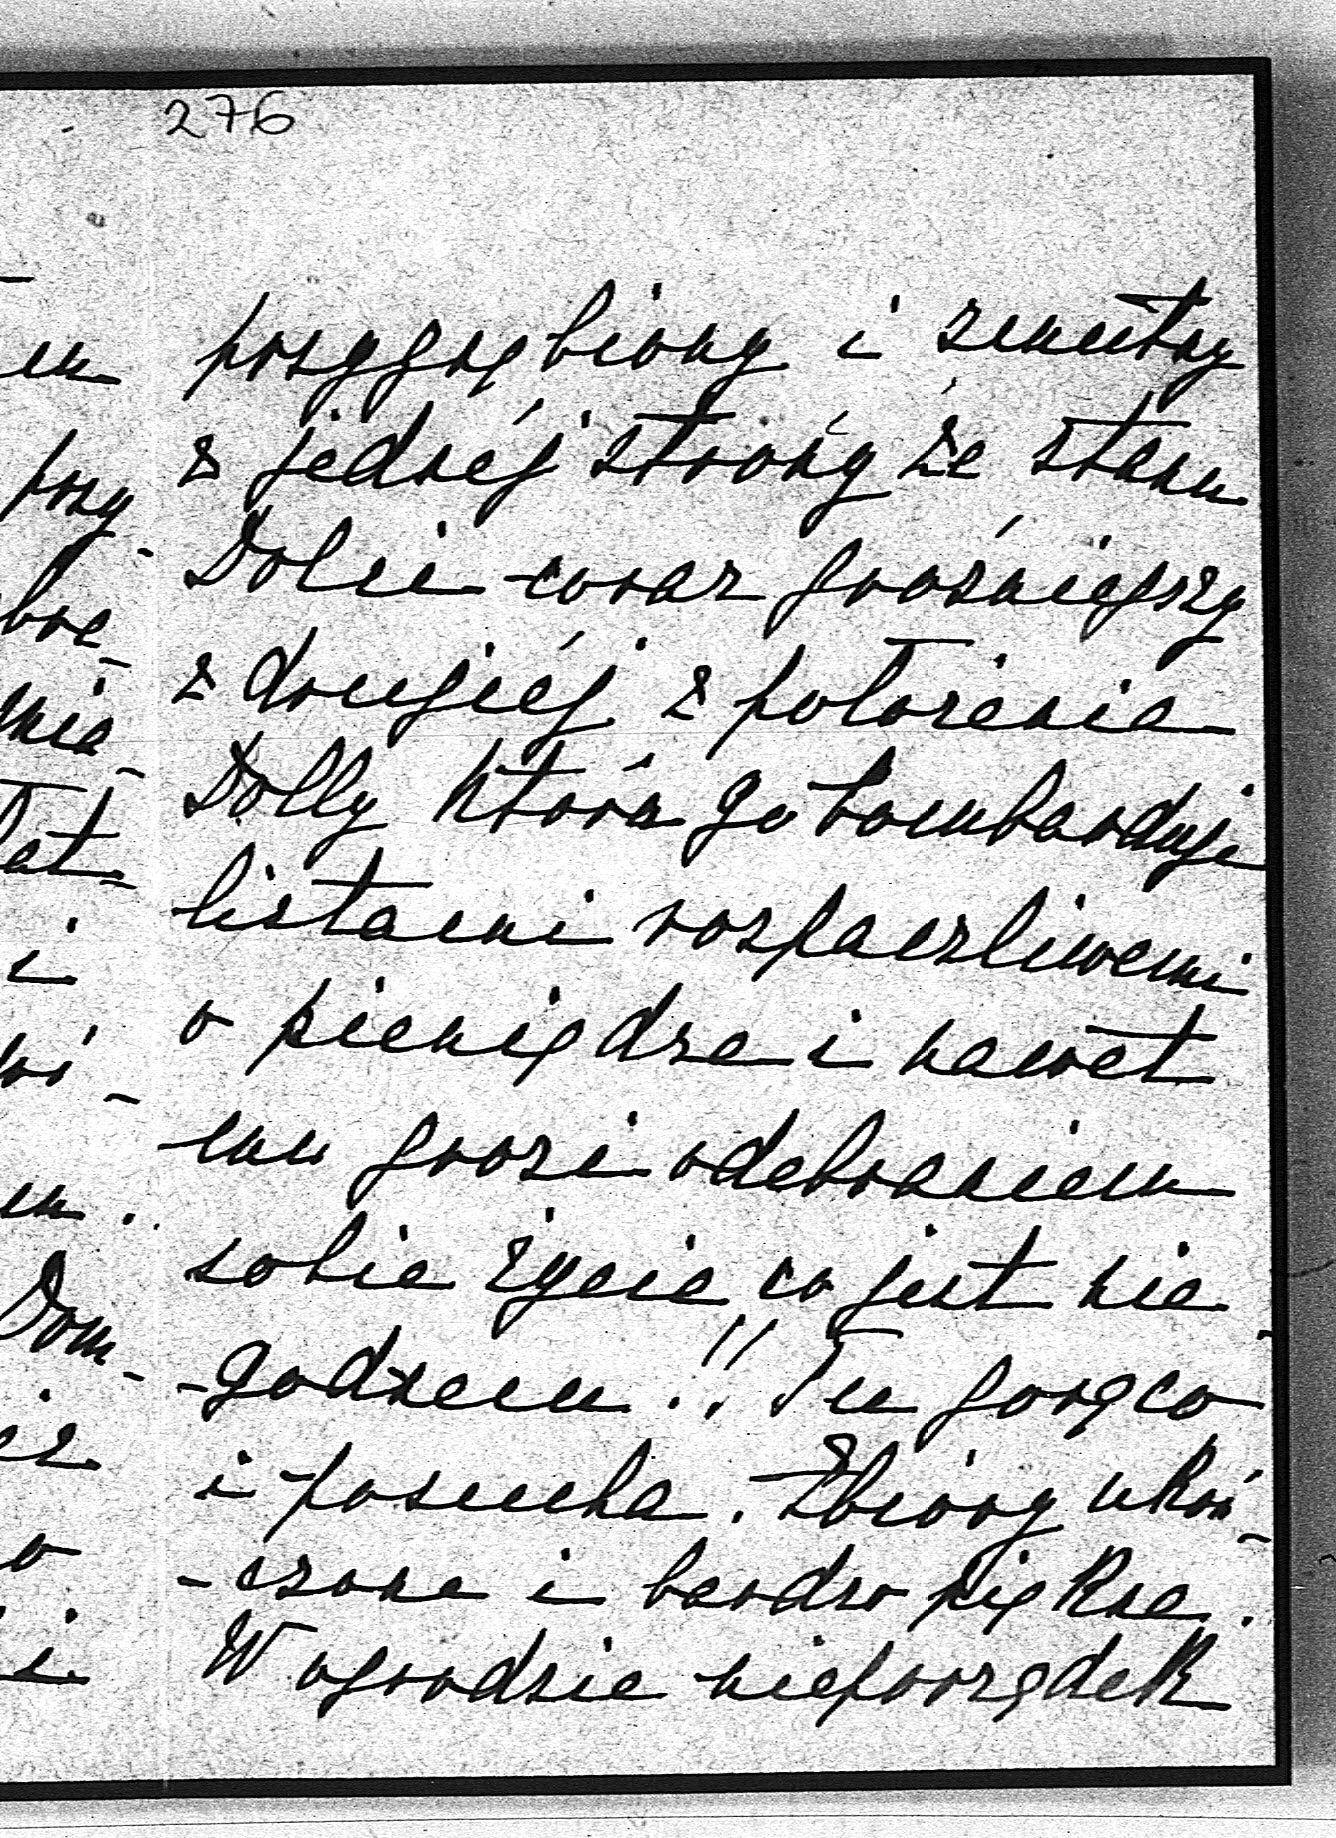 276
przygnębiony i smutny
z jednéj strony że stan
Dolii coraz groźniejszy
z drugiéj z położenia
Dolly która go bombarduje
listami rozpaczliwemi
o pieniędze i nawet
mu grozi odebraniem
sobie życia co jest nie-
-godnem!! Tu gorąco
i posucha. Zbiory ukoń-
-czone i bardzo piękne.
W ogrodzie nieporządek